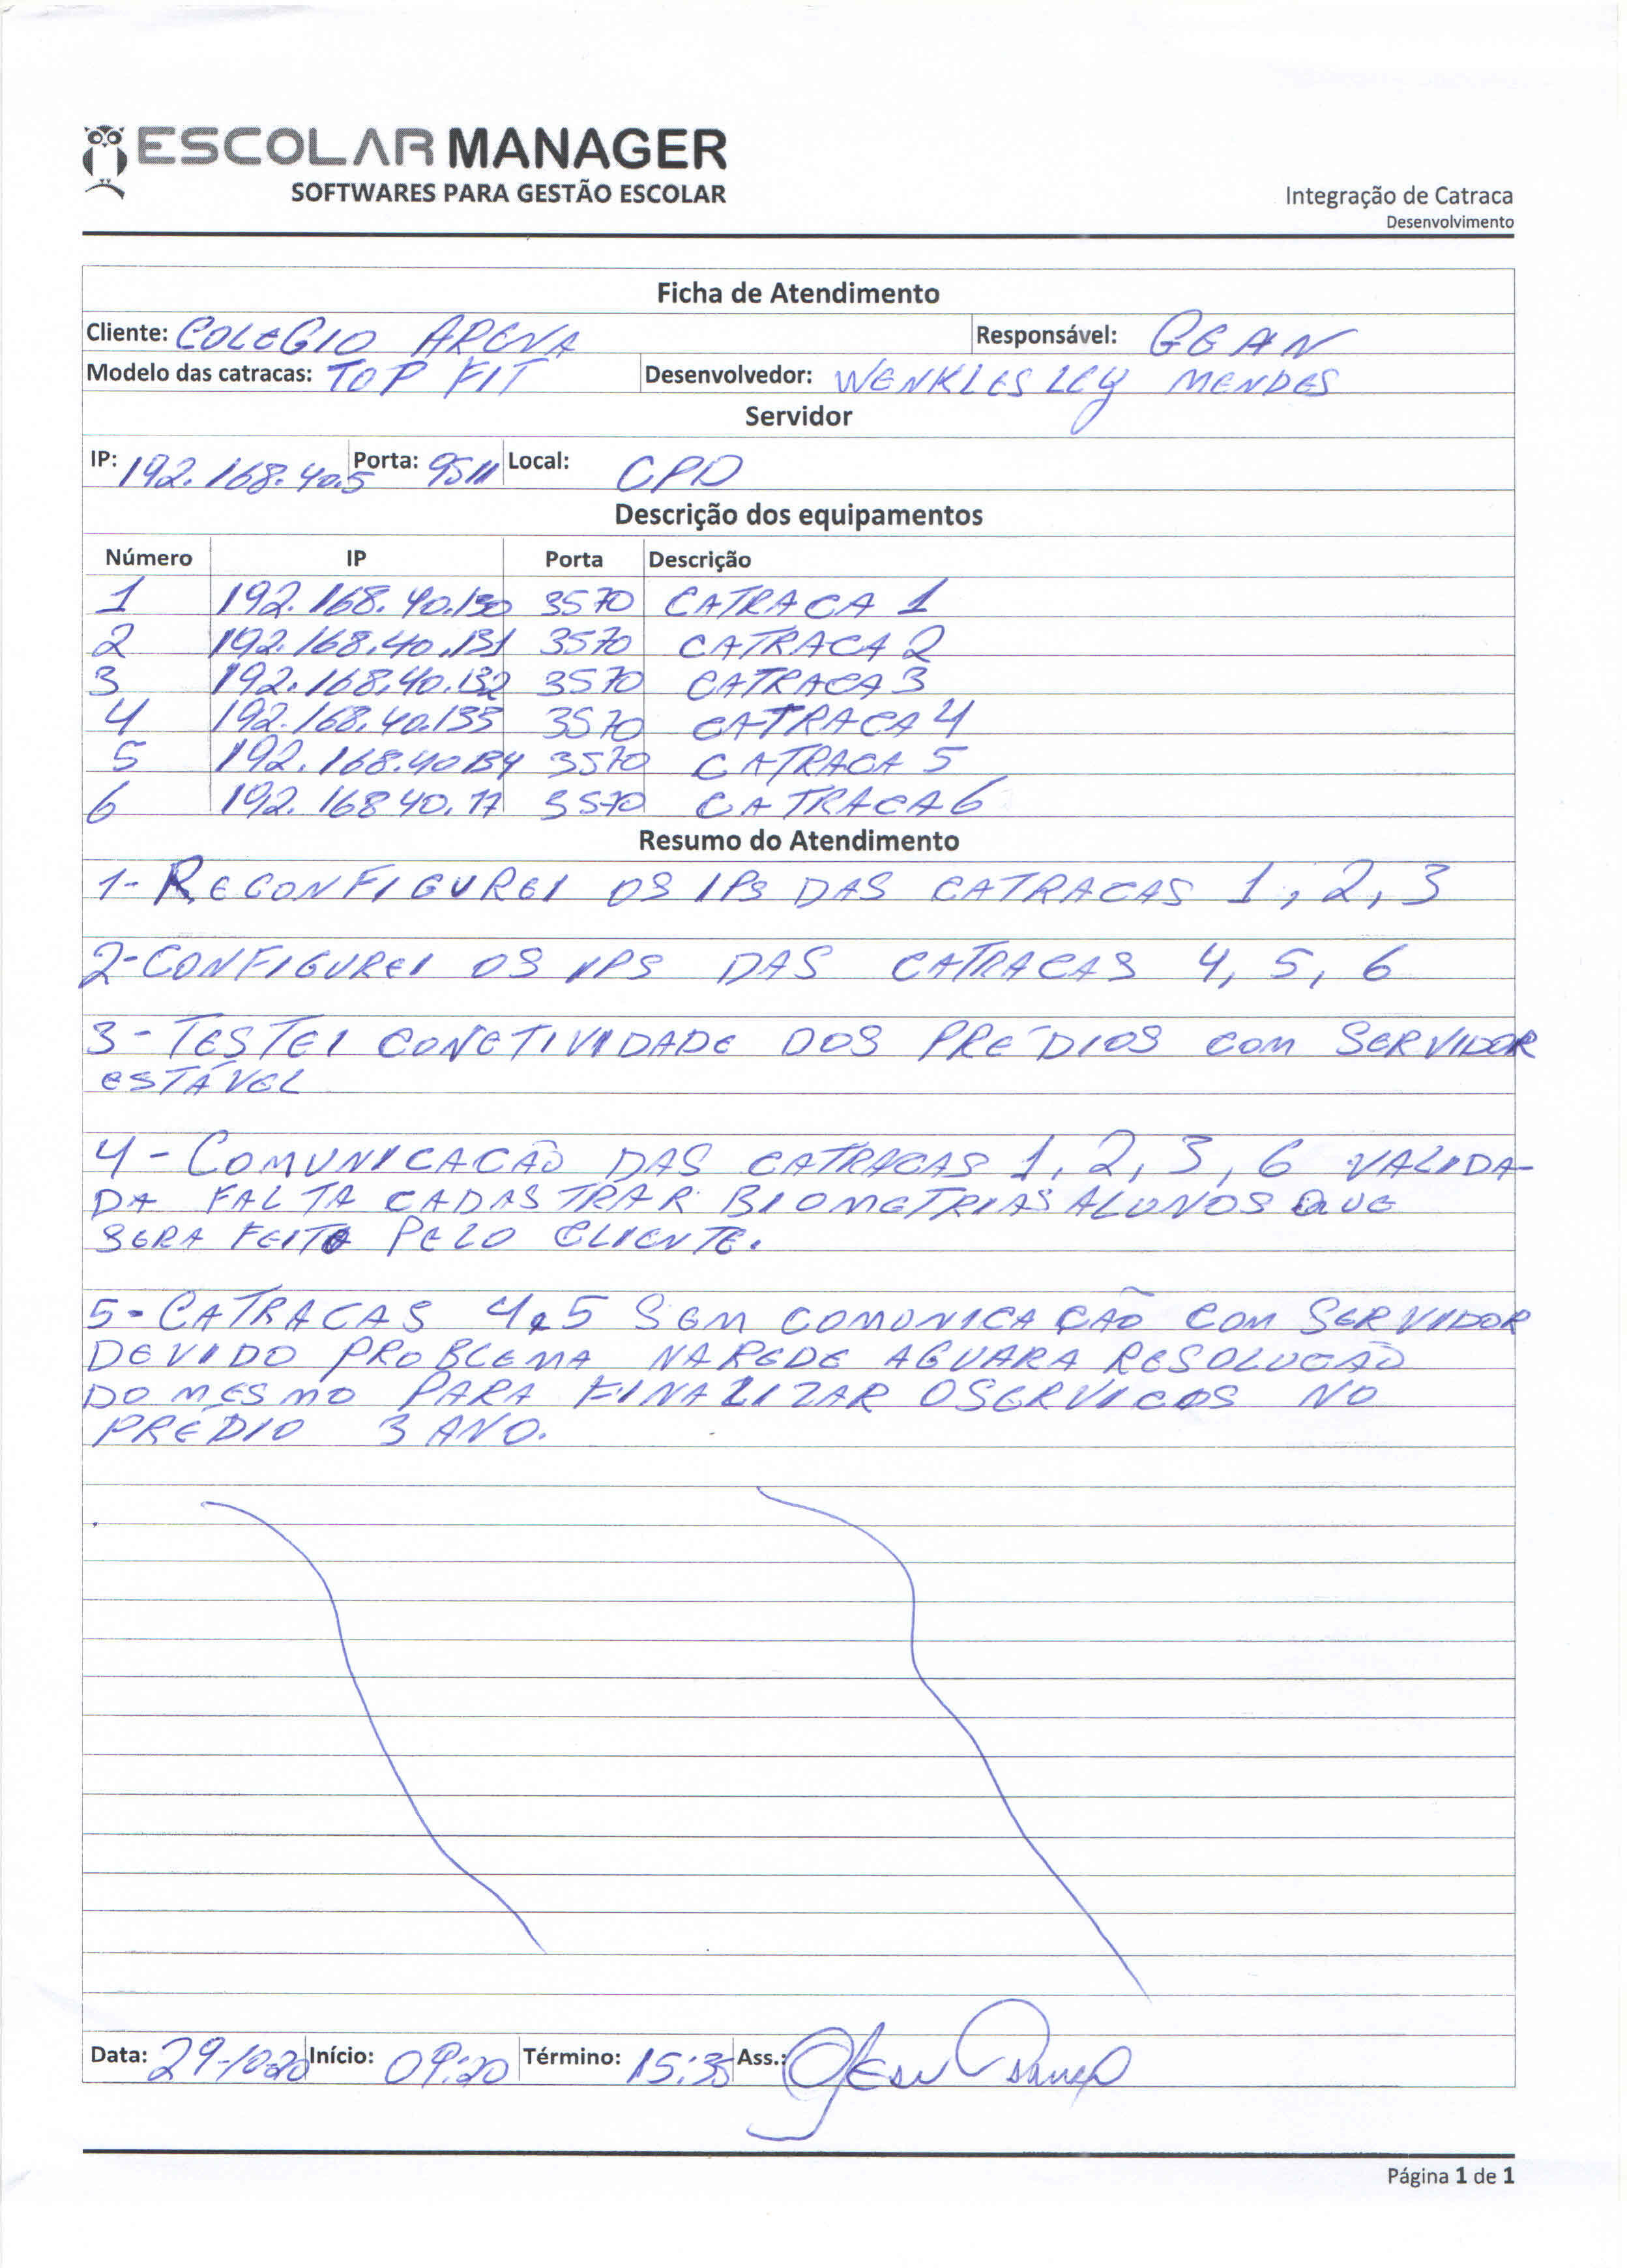 ESCOLAR MANAGER
SOFTWARES PARA GESTÃO ESCOLAR
Integração de Catraca
Desenvolvimento
Ficha de Atendimento
Cliente: COLEGIO ARENA Responsável: GEAN
Modelo das catracas: TOP FIT Desenvolvedor: WENKLESLEY MENDES
Servidor
IP: 192.168.40.5 Porta: 9511 Local: CPD
Descrição dos equipamentos
Número IP Porta Descrição
1 192.168.40.130 3570 CATRACA 1
2 192.168.40.131 3570 CATRACA 2
3 192.168.40.132 3570 CATRACA 3
4 192.168.40.133 3570 CATRACA 4
5 192.168.40134 3570 CATRACA 5
6 192.16840.17 3570 CATRACA 6
Resumo do Atendimento
1- RECONFIGUREI OS IPS DAS CATRACAS 1, 2, 3
2-CONFIGUREI OS IPS DAS CATRACAS 4, 5, 6
3 - TESTEI CONETIVIDADE DOS PRÉDIOS COM SERVIDOR
ESTÁVEL
4 - COMUNICACÃO DAS CATRACAS 1, 2, 3, 6 VALIDA-
DA FALTA CADASTRAR BIOMETRIAS ALUNOS QUE
SERA FEITO PELO CLIENTE.
5- CATRACAS 4 e 5 SEM COMUNICAÇÃO COM SERVIDOR
DEVIDO PROBLEMA NA REDE AGUARA RESOLUCÃO
DO MESMO PARA FINALIZAR OSERVICOS NO
PRÉDIO 3 ANO.
Data: 29-10-20 Início: 09:20 Término: 15:35 Ass.: Gean
Página 1 de 1